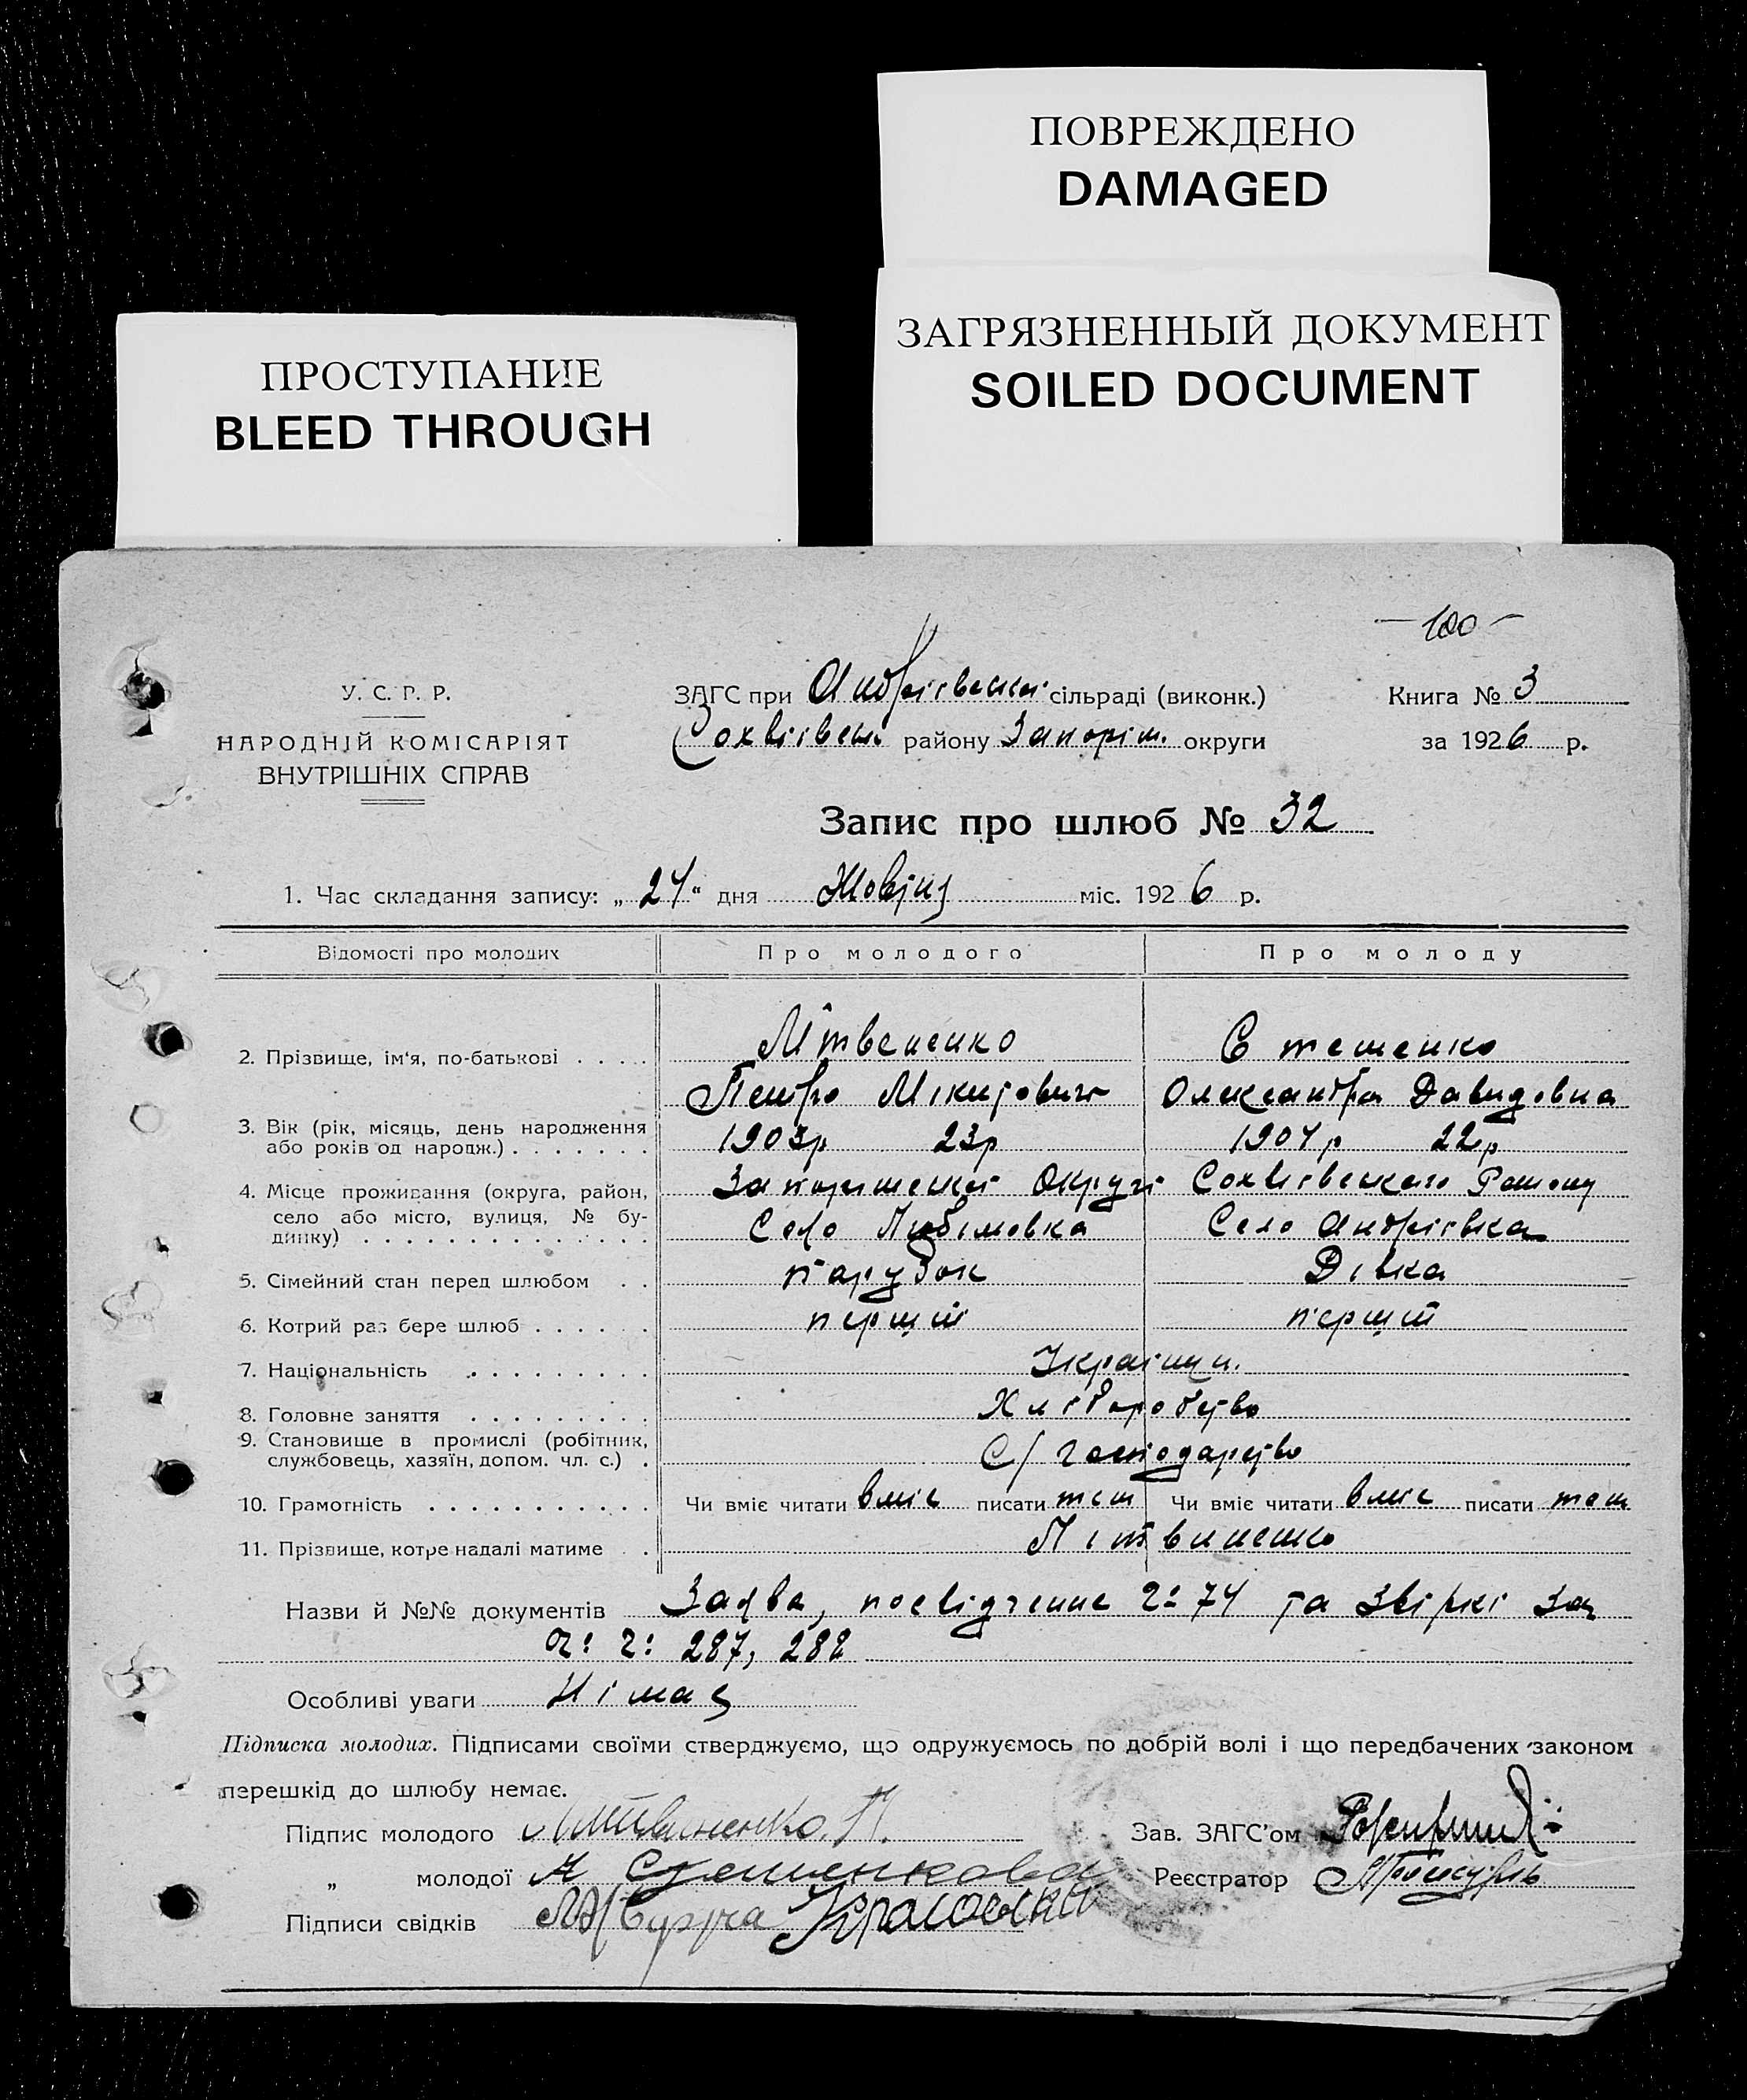 ПОВРЕЖДЕНО
DAMAGED
ЗАГРЯЗНЕННЫЙ ДОКУМЕНТ
SOILED DOCUMENT
ПРОСТУПАНИЕ
BLEED THROUGH
У. С. Р. Р.
НАРОДНІЙ КОМІСАРІЯТ
ВНУТРІШНІХ СПРАВ
ЗАГС при Андріївській сільраді (виконк.) Книга № 3
району Запоріж. округи за 1926 р.
Запис про шлюб № 32
1. Час складання запису: „24“ дня Жовтня міс. 1926 р.
Відомості про молодих Про молодого Про молоду
2. Прізвище, ім'я, по-батькові . . . . Стешенко
Петро Олександра Давидовна
3. Вік (рік, місяць, день народження або років од народж.) . . . . . . . 1903р 23р 1904р 22р
4. Місце проживання (округа, район, село або місто, вулиця, № будинку) . . . . Округи
Село Любімовка Село Андріївка
5. Сімейний стан перед шлюбом . . парубок Дівка
6. Котрий раз бере шлюб . . . . . перший перший
7. Національність . . . . . . . . . Україн.
8. Головне заняття . . . . . . . . . Хліборобство
9. Становище в промислі (робітник, службовець, хазяїн, допом. чл. с.) . С/господарство
10. Грамотність . . . . . . . . . . . Чи вміє читати вміє писати теж Чи вміє читати вміє писати теж
11. Прізвище, котре надалі матиме . . Літвиненко
Назви й №№ документів Заява, посвідчення 74 та за
287, 288
Особливі уваги Німає
Підписка молодих. Підписами своїми стверджуємо, що одружуємось по добрій волі і що передбачених законом
перешкід до шлюбу немає.
Підпис молодого Литвиненко. П. Зав. ЗАГС'ом
„ молодої А Стешенкова Реєстратор
Підписи свідків